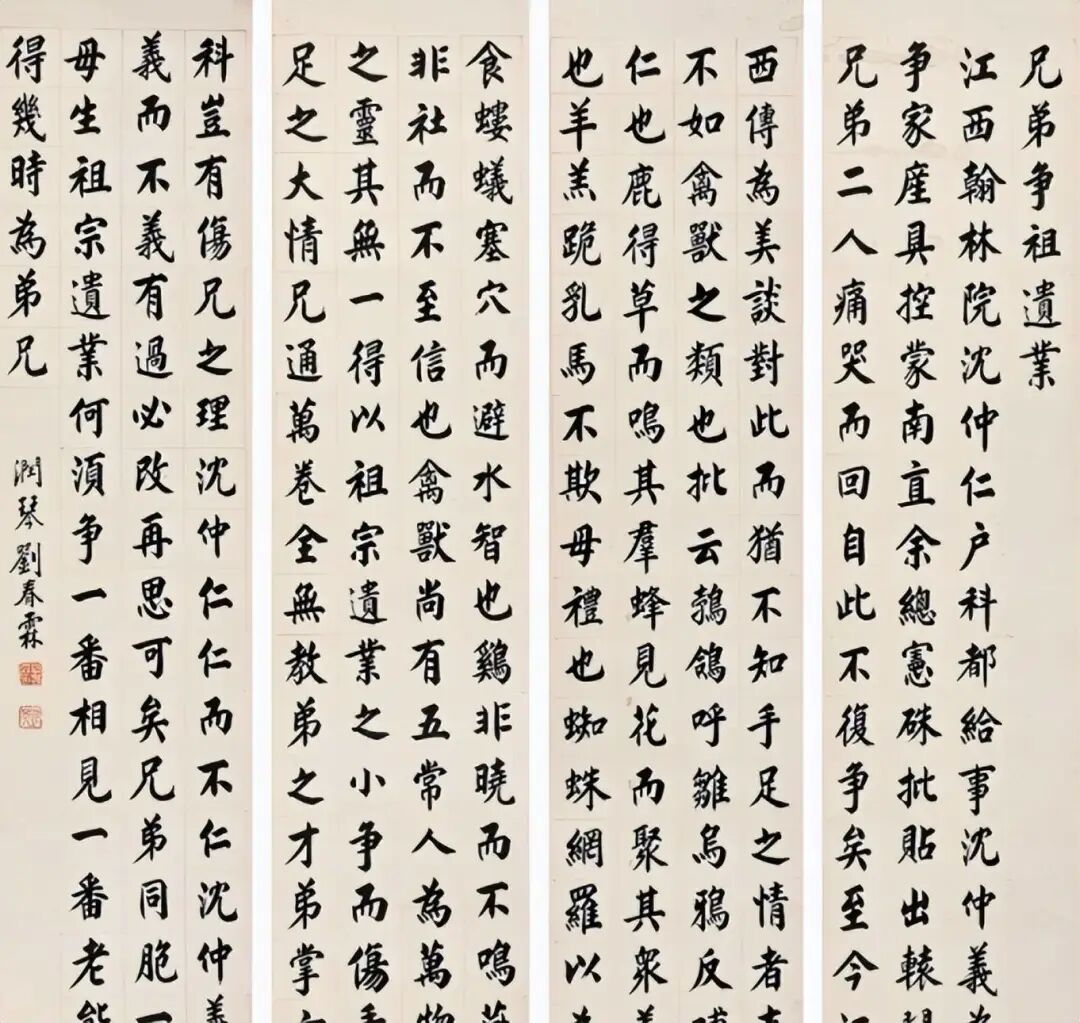 兄弟争祖遺業
江西翰林院沈仲仁户科都給事沈仲義為
争家産具控蒙南直余總憲硃批貼出轅
兄弟二人痛哭而回自此不復争矣至今江
西傳為美談對此而猶不知手足之情者
不如禽獸之類也批云鵓鴿呼雛烏鴉反哺
仁也鹿得草而鳴其羣蜂見花而聚其衆義
也羊羔跪乳馬不欺母禮也蜘蛛網羅以為
食螻蟻塞穴而避水智也鷄非曉而不鳴燕
非社而不至信也禽獸尚有五常人為萬物
之靈其無一得以祖宗遺業之小争而傷手
足之大情兄通萬卷全無教弟之才弟掌六
科豈有傷兄之理沈仲仁仁而不仁沈仲義
義而不義有過必改再思可矣兄弟同胞一
母生祖宗遺業何須争一番相見一番老能
得幾時為弟兄
潤琴劉春霖